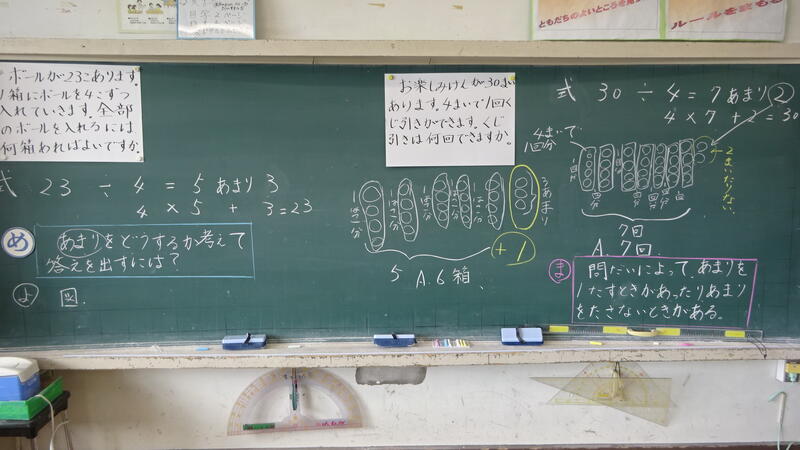 ともだちのよいところを見
ルールをまもる
ボールが23こあります。
1箱にボールを4こずつ
入れていきます。全部
のボールを入れるには
何箱あればよいですか。
式 23 ÷ 4 = 5 あまり 3
4 × 5 + 3 = 23
め
あまりをどうするか考えて
答えを出すには?
よ 図.
お楽しみけんが30まい
あります。4まいで1回く
じ引きができます。くじ
引きは何回できますか。
1ぱこ分
1ぱこ分
1ぱこ分
1ぱこ分
1ぱこ分
3あまり
+1
5 A.6箱、
式 30 ÷ 4 = 7 あまり 2
4 × 7 + 2 = 30
4まいで
1回分
2まいたりない。
7回
A. 7回.
ま
問だいによって、あまりを
1たすときがあったりあまり
をたさないときがある。